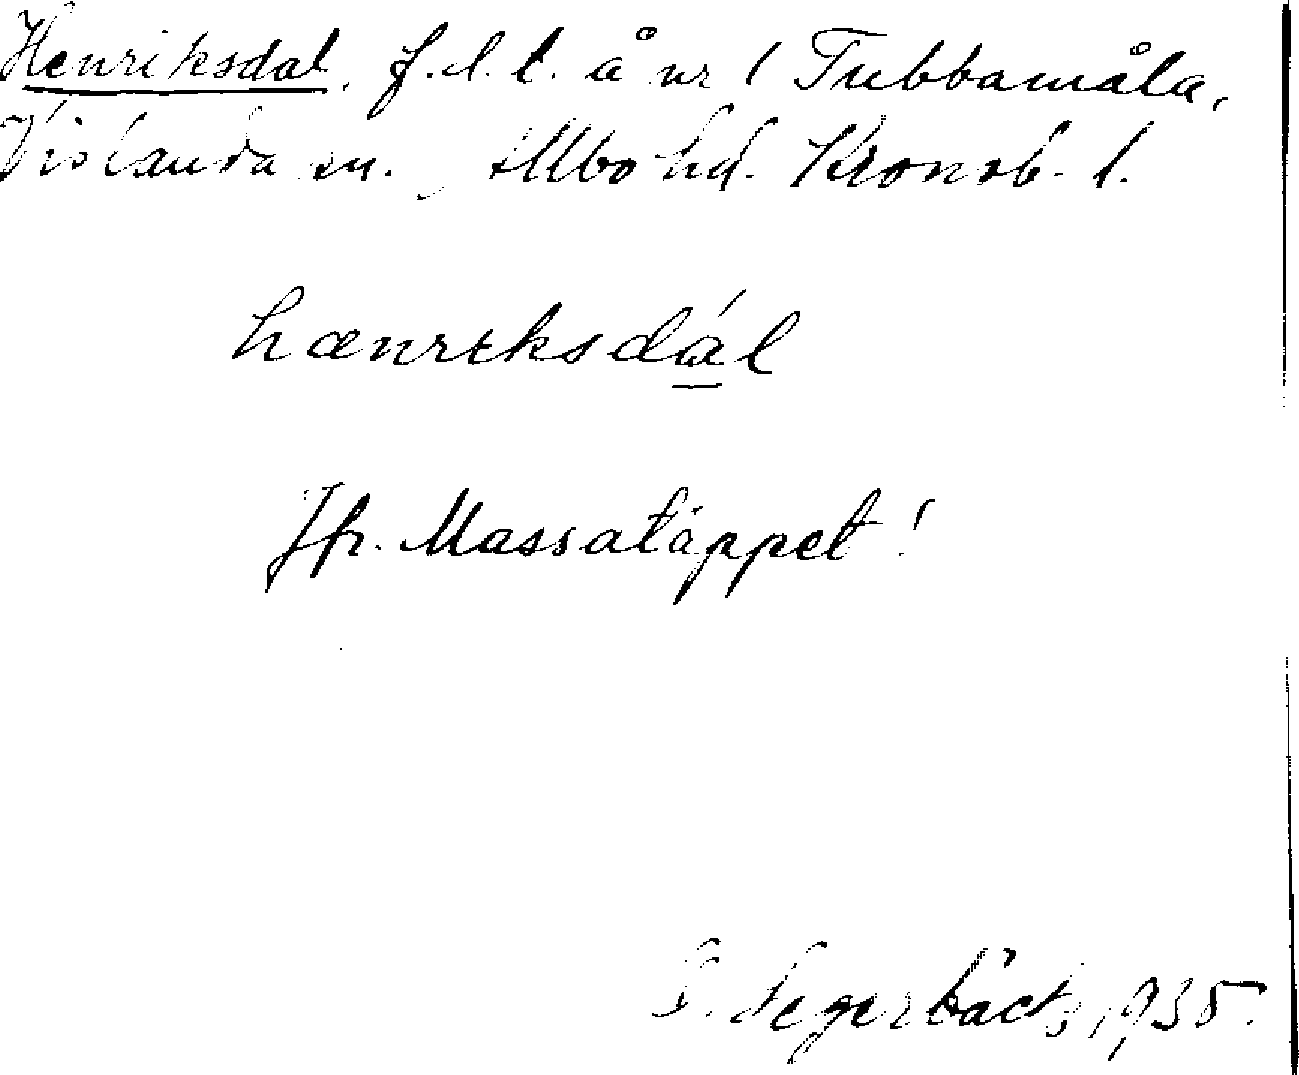 Henriksdal, f.d.l. å nr 1 Tubbamåla,
Vislanda sn., Allbo hd. Kronob. l.
hænrɩksdál
Jfr. Massatäppet!
Segerbäck, 1935.